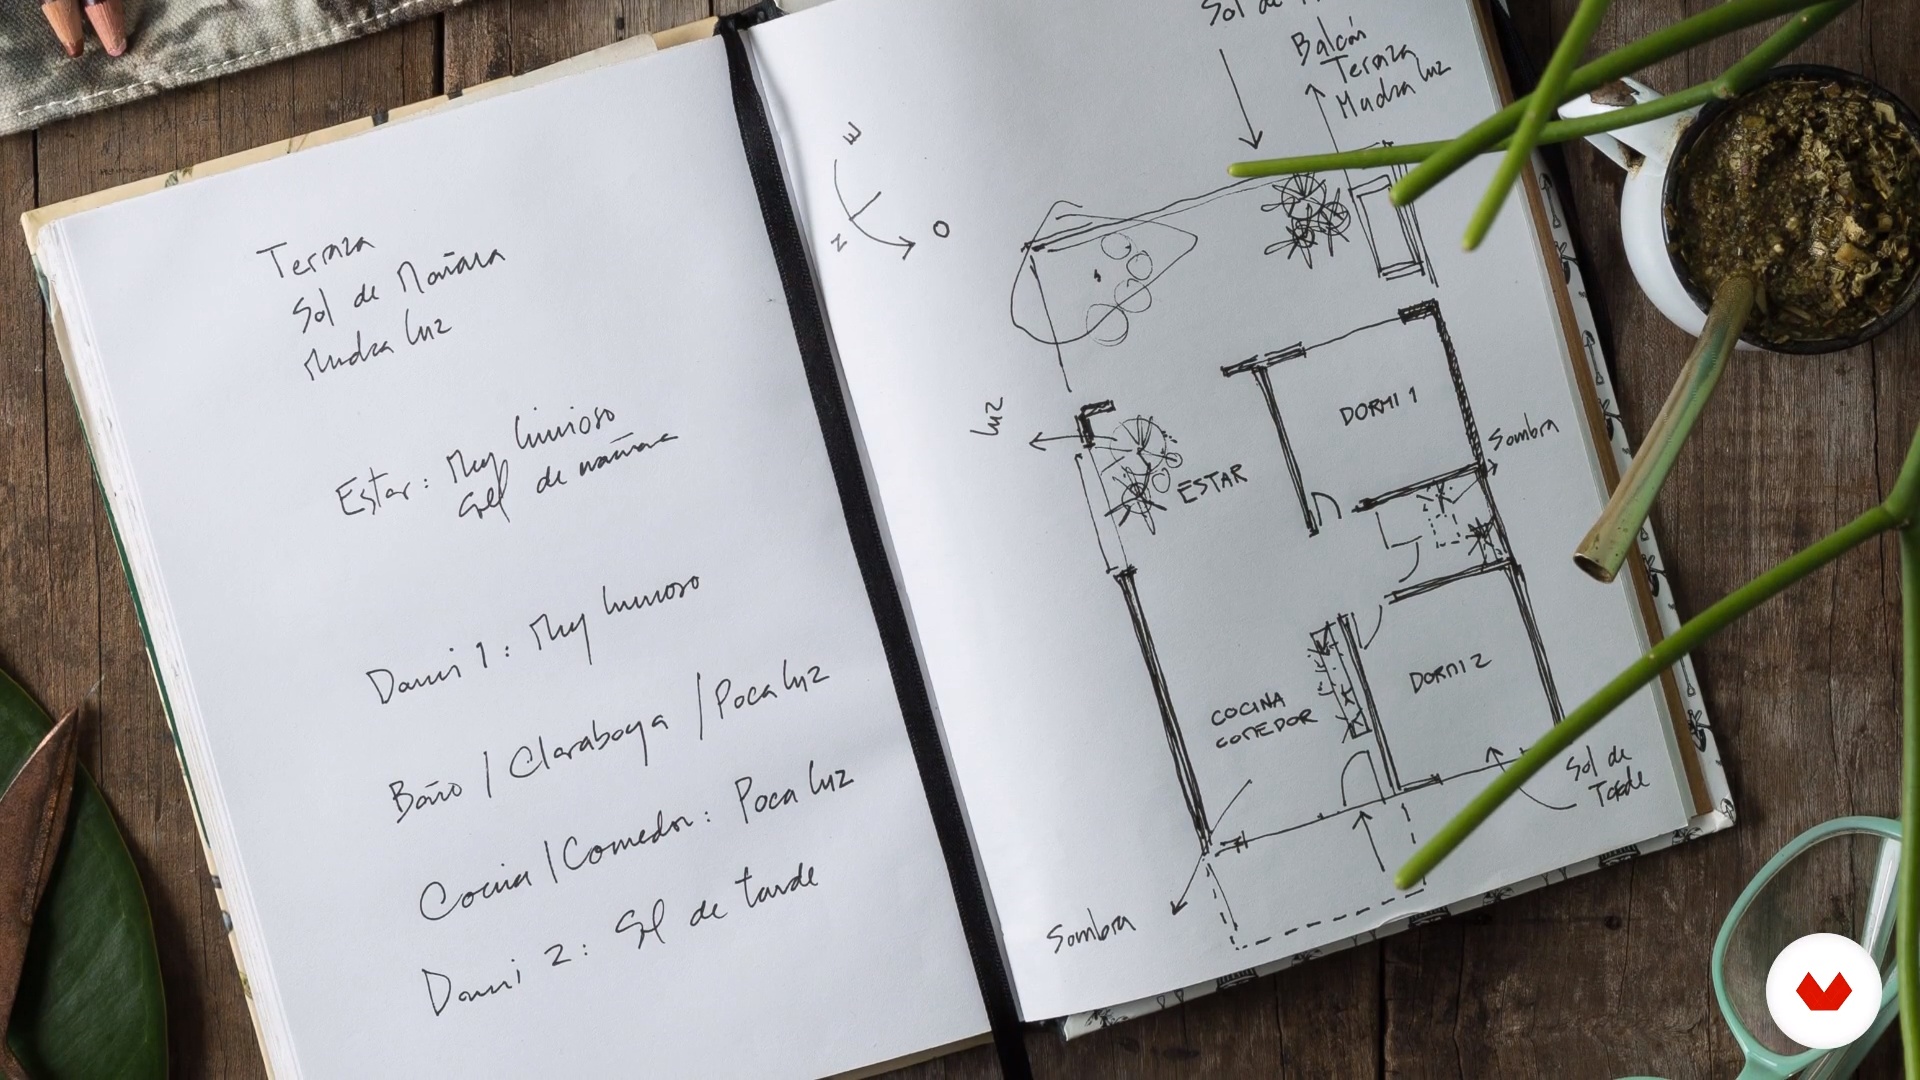 Terraza
Sol de Mañana
Mucha luz
Estar: Muy luminoso
Sol de mañana
Dormi 1: Muy luminoso
Baño / Claraboya / Poca luz
Cocina / Comedor: Poca luz
Dormi 2: Sol de tarde
E
N
O
Sol de
Balcón
Terraza
Mucha luz
Luz
ESTAR
DORMI 1
Sombra
COCINA
COMEDOR
DORMI 2
Sol de
Tarde
Sombra